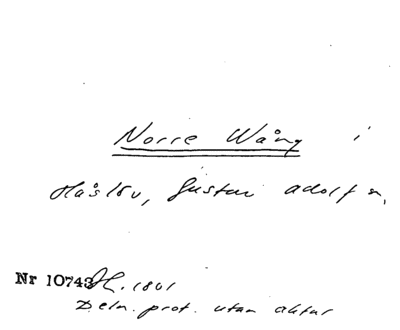 Norre Wång i
Håslöv, Gustav Adolf s.
Nr 10743 1801
Deln. prot. utan aktnr